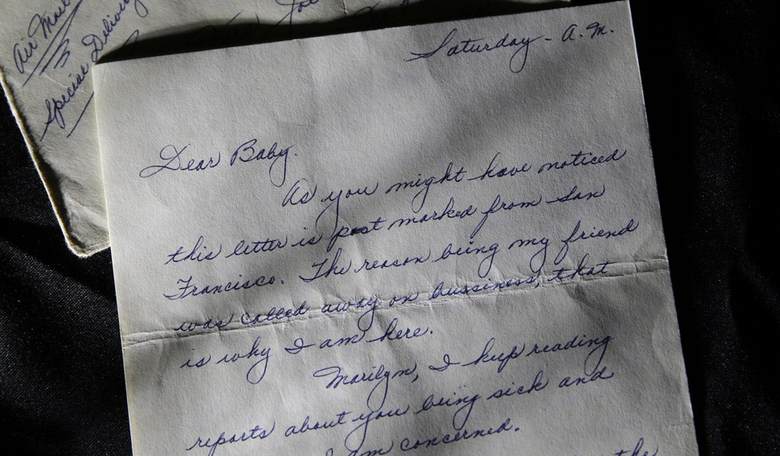 Air Mail
Special Delivery
Saturday - A.M.
Dear Baby.
As you might have noticed
this letter is post marked from San
Francisco. The reason being my friend
was called away on bussiness, that
is why I am here.
Marilyn, I keep reading
reports about you being sick and
I am concerned.
the